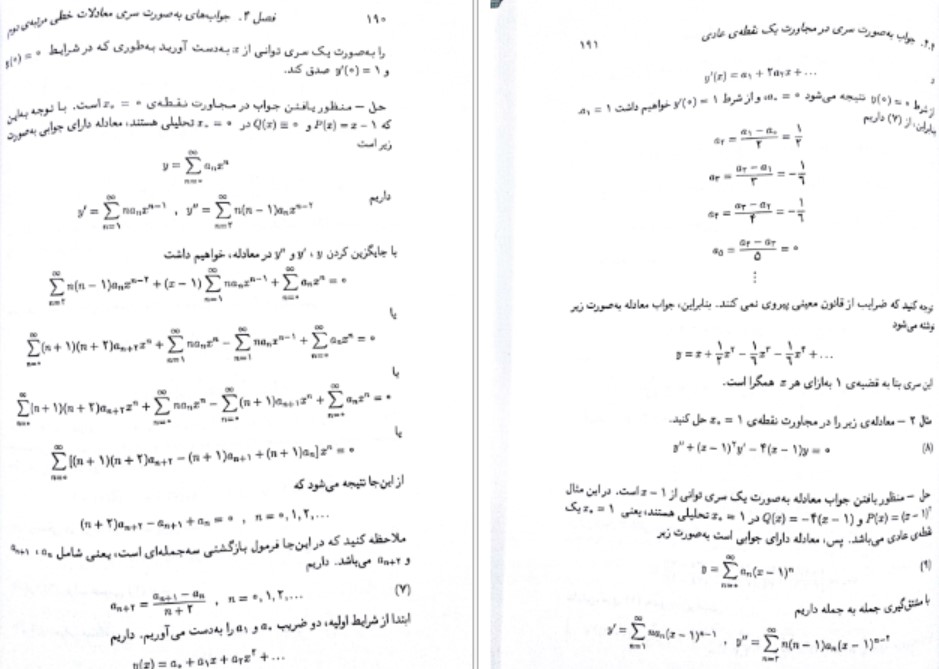 ۱۹۰ فصل ۴. جواب‌های به‌صورت سری معادلات خطی مرتبه‌ی دوم
را به‌صورت یک سری توانی از x به‌دست آورید به‌طوری که در شرایط y(۰) = ۰
و y′(۰) = ۱ صدق کند.
حل – منظور یافتن جواب در مجاورت نقطه‌ی x₀ = ۰ است. با توجه به‌این
که P(x) = x − ۱ و Q(x) ≡ ۰ در x₀ = ۰ تحلیلی هستند، معادله دارای جوابی به‌صورت
زیر است
y = ∑_{n=۰}^{∞} aₙxⁿ
داریم
y′ = ∑_{n=۱}^{∞} naₙxⁿ⁻¹ , y″ = ∑_{n=۲}^{∞} n(n − ۱)aₙxⁿ⁻²
با جایگزین کردن y، y′ و y″ در معادله، خواهیم داشت
∑_{n=۲}^{∞} n(n − ۱)aₙxⁿ⁻² + (x − ۱) ∑_{n=۱}^{∞} naₙxⁿ⁻¹ + ∑_{n=۰}^{∞} aₙxⁿ = ۰
یا
∑_{n=۰}^{∞} (n + ۱)(n + ۲)aₙ₊₂xⁿ + ∑_{n=۱}^{∞} naₙxⁿ − ∑_{n=۱}^{∞} naₙxⁿ⁻¹ + ∑_{n=۰}^{∞} aₙxⁿ = ۰
یا
∑_{n=۰}^{∞} (n + ۱)(n + ۲)aₙ₊₂xⁿ + ∑_{n=۰}^{∞} naₙxⁿ − ∑_{n=۰}^{∞} (n + ۱)aₙ₊₁xⁿ + ∑_{n=۰}^{∞} aₙxⁿ = ۰
یا
∑_{n=۰}^{∞} [(n + ۱)(n + ۲)aₙ₊₂ − (n + ۱)aₙ₊₁ + (n + ۱)aₙ] xⁿ = ۰
از این‌جا نتیجه می‌شود که
(n + ۲)aₙ₊₂ − aₙ₊₁ + aₙ = ۰ , n = ۰, ۱, ۲, ...
ملاحظه کنید که در این‌جا فرمول بازگشتی سه‌جمله‌ای است، یعنی شامل aₙ، aₙ₊₁
و aₙ₊₂ می‌باشد. داریم
(۷) aₙ₊₂ = (aₙ₊₁ − aₙ)/(n + ۲) , n = ۰, ۱, ۲, ...
ابتدا از شرایط اولیه، دو ضریب a₀ و a₁ را به‌دست می‌آوریم. داریم
y(x) = a₀ + a₁x + a₂x² + ...
۴.۲. جواب به‌صورت سری در مجاورت یک نقطه‌ی عادی ۱۹۱
و
y′(x) = a₁ + ۲a₂x + ...
از شرط y(۰) = ۰ نتیجه می‌شود a₀ = ۰، و از شرط y′(۰) = ۱ خواهیم داشت a₁ = ۱.
بنابراین، از (۷) داریم
a₂ = (a₁ − a₀)/۲ = ۱/۲
a₃ = (a₂ − a₁)/۳ = −۱/۶
a₄ = (a₃ − a₂)/۴ = −۱/۶
a₅ = (a₄ − a₃)/۵ = ۰
⋮
توجه کنید که ضرایب از قانون معینی پیروی نمی کنند. بنابراین، جواب معادله به‌صورت زیر
نوشته می‌شود
y = x + ۱/۲ x² − ۱/۶ x³ − ۱/۶ x⁴ + ...
این سری بنا به قضیه‌ی ۱ به‌ازای هر x همگرا است.
مثال ۲ – معادله‌ی زیر را در مجاورت نقطه‌ی x₀ = ۱ حل کنید.
(۸) y″ + (x − ۱)²y′ − ۴(x − ۱)y = ۰
حل – منظور یافتن جواب معادله به‌صورت یک سری توانی از x − ۱ است. در این مثال
P(x) = (x − ۱)² و Q(x) = −۴(x − ۱) در x₀ = ۱ تحلیلی هستند، یعنی x₀ = ۱ یک
نقطه‌ی عادی می‌باشد. پس، معادله دارای جوابی است به‌صورت زیر
(۹) y = ∑_{n=۰}^{∞} aₙ(x − ۱)ⁿ
با مشتق‌گیری جمله به جمله داریم
y′ = ∑_{n=۱}^{∞} naₙ(x − ۱)ⁿ⁻¹ , y″ = ∑_{n=۲}^{∞} n(n − ۱)aₙ(x − ۱)ⁿ⁻²